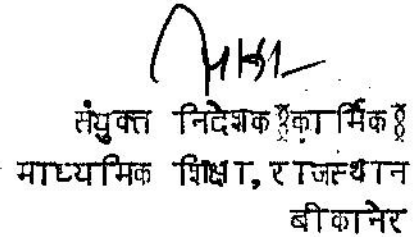 संयुक्त निदेशक §कार्मिक§
माध्यमिक शिक्षा, राजस्थान
बीकानेर